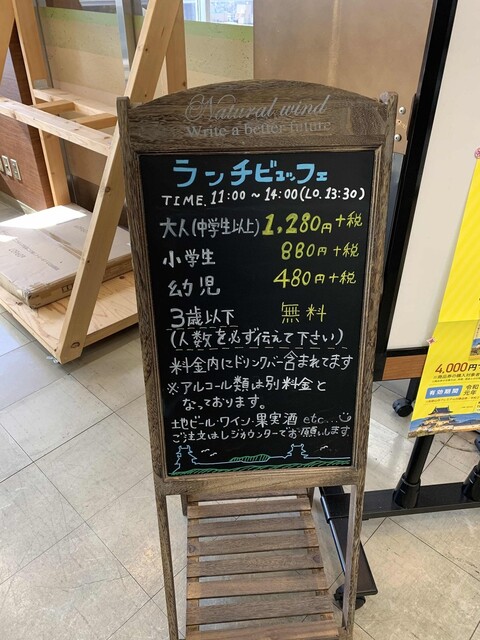 Natural wind
Write a better future
ランチビュッフェ
TIME. 11:00 ~ 14:00 (L.O. 13:30)
大人(中学生以上) 1,280円+税
小学生 880円+税
幼児 480円+税
3歳以下 無料
(人数を必ず伝えて下さい)
料金内にドリンクバー含まれてます
※アルコール類は別料金と
なっております。
地ビール・ワイン・果実酒 etc...
ご注文はレジカウンターでお願いします。
4,000円
有効期間 令和
元年